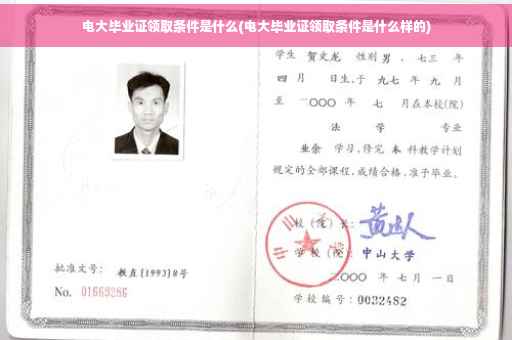 电大毕业证领取条件是什么(电大毕业证领取条件是什么样的)
学生 贺文龙 性别 男 、七三 年
四 月 日生,于 九七 年 九 月
至 二〇〇〇 年 七 月在本校(院)
法 学 专业
业余 学习,修完 本 科教学计划
规定的全部课程,成绩合格,准予毕业。
校(院)长:
学校(院): 中山大学
二〇〇〇 年 七 月 一 日
学校编号: 0032482
批准文号: 教直[1993]8号
No. 01669286